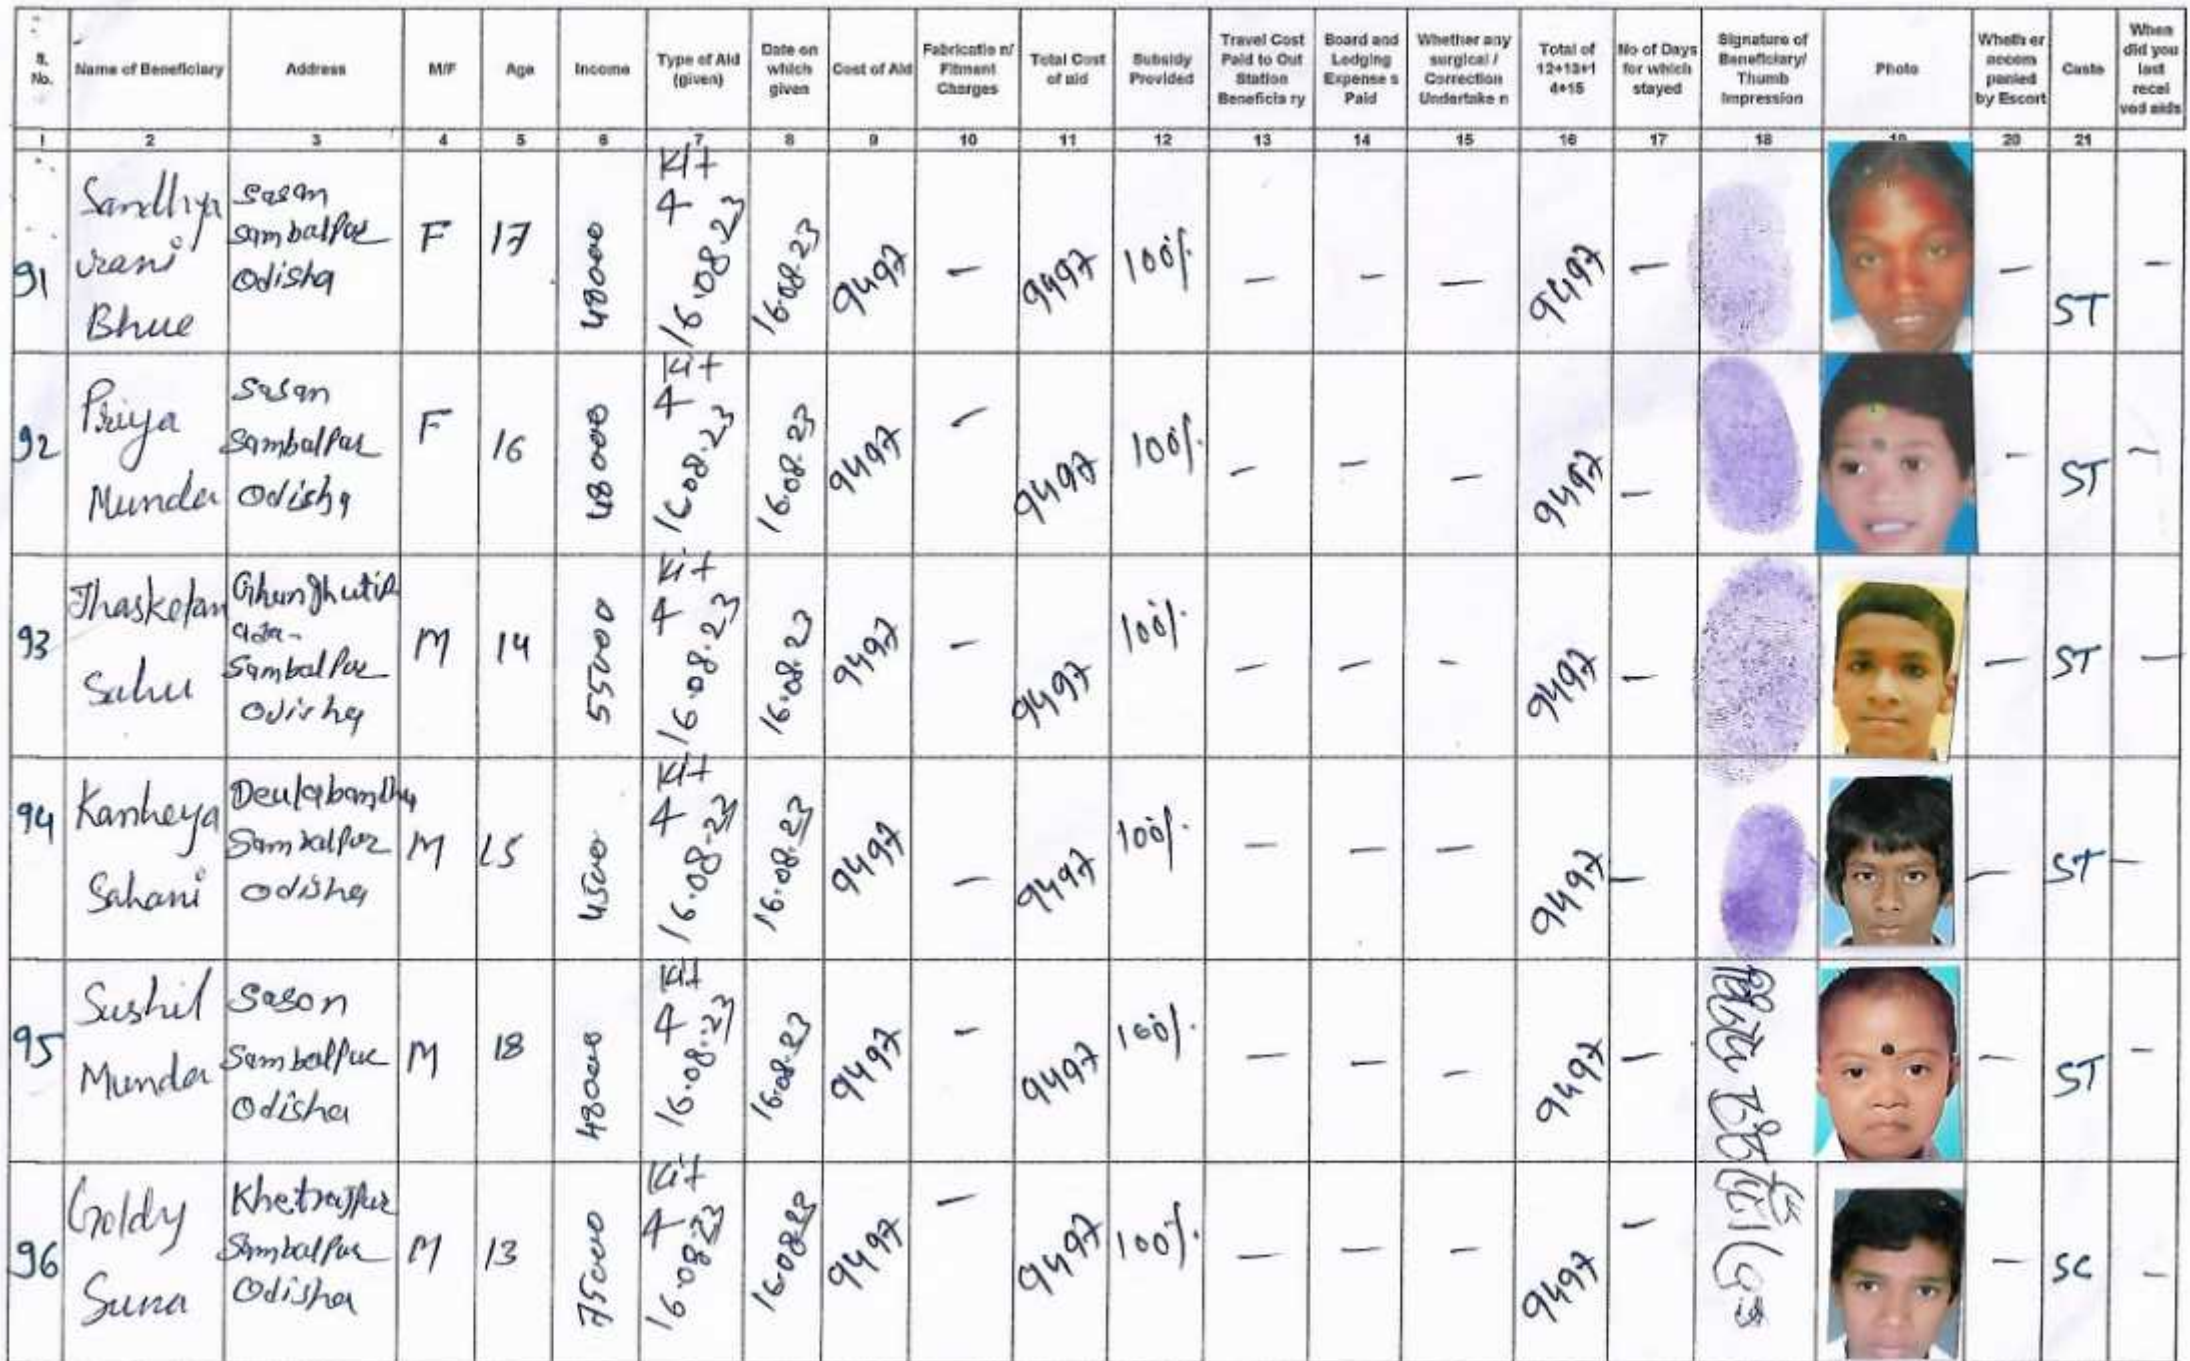 S. No. Name of Beneficiary Address M/F Age Income Type of Aid (given) Date on which given Cost of Aid Fabricatio n/ Fitment Charges Total Cost of aid Subsidy Provided Travel Cost Paid to Out Station Beneficia ry Board and Lodging Expense s Paid Whether any surgical / Correction Undertake n Total of 12+13+1 4+15 No of Days for which stayed Signature of Beneficiary/ Thumb Impression Photo Wheth er accom panied by Escort Caste When did you last recei ved aids
1 2 3 4 5 6 7 8 9 10 11 12 13 14 15 16 17 18 19 20 21
91 Sandhya rani Bhue Sasan Sambalpur Odisha F 17 48000 Kit 4 16.08.23 16.08.23 9497 — 9497 100% — — — 9497 — — ST —
92 Priya Munda Sasan Sambalpur Odisha F 16 48000 Kit 4 16.08.23 16.08.23 9497 — 9497 100% — — — 9497 — — ST —
93 Jhasketan Sahu Sambalpur Odisha M 14 55000 Kit 4 16.08.23 16.08.23 9497 — 9497 100% — — — 9497 — — ST —
94 Kanheya Sahani Deulabandha Sambalpur Odisha M 15 4500 Kit 4 16.08.23 16.08.23 9497 — 9497 100% — — — 9497 — — ST —
95 Sushil Munda Sason Sambalpur Odisha M 18 48000 Kit 4 16.08.23 16.08.23 9497 — 9497 100% — — — 9497 — — ST —
96 Goldy Suna Khetrajpur Sambalpur Odisha M 13 75000 Kit 4 16.08.23 16.08.23 9497 — 9497 100% — — — 9497 — — SC —